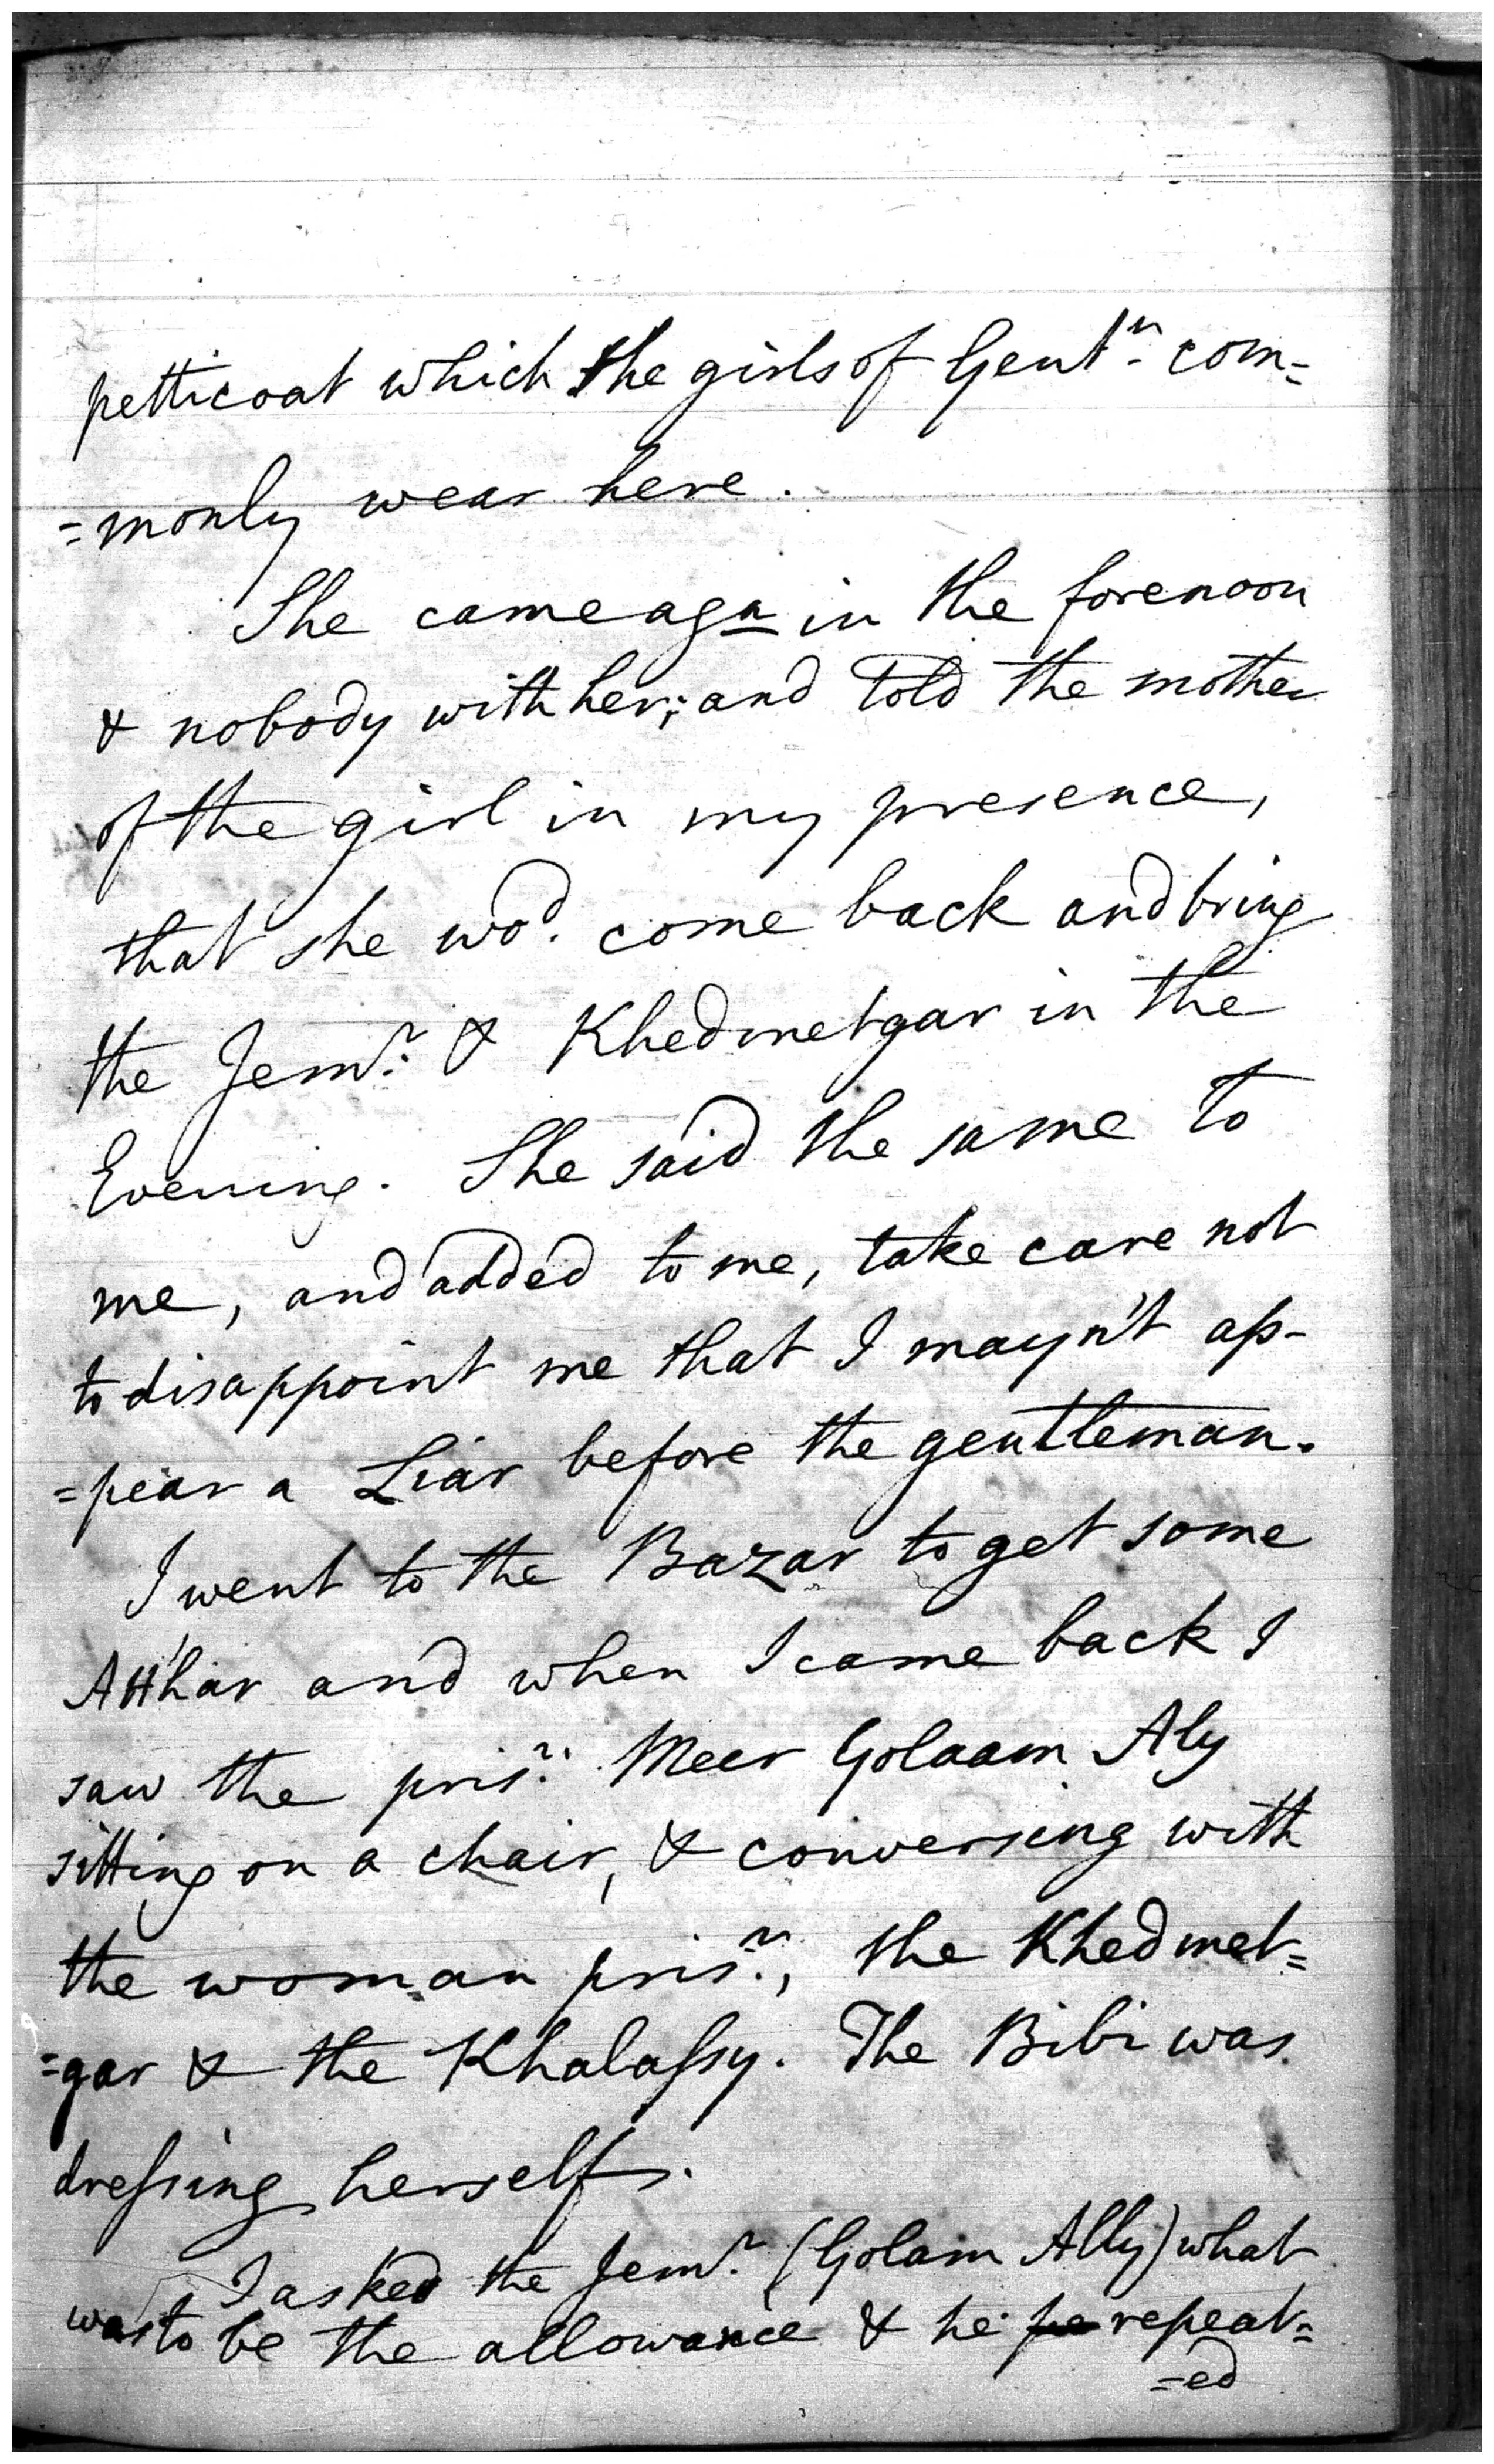 petticoat which the girls of Gentn. com=
=monly wear here.
She came agn in the forenoon
& nobody with her; and told the mother
of the girl in my presence,
that she wod. come back and bring
the Jemr. & Khedmetgar in the
Evening. She said the same to
me, and added to me, take care not
to disappoint me that I mayn't ap-
=pear a Liar before the gentleman.
I went to the Bazar to get some
Atthar and when I came back I
saw the prisr. Meer Golaam Aly
sitting on a chair, & conversing with
the woman prisr., the Khedmet=
=gar & the Khalaſsy. The Bibi was
dreſsing herself.
I asked the Jemr. (Golam Ally) what
was to be the allowance & he repeat=
=ed